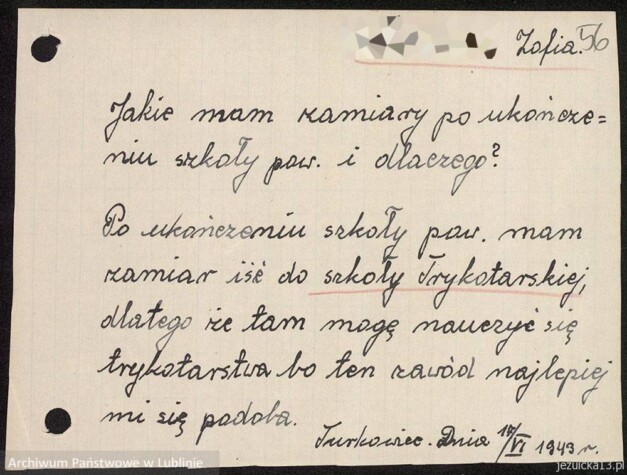 Zofia. 56
Jakie mam zamiary po ukończe=
niu szkoły pow. i dlaczego?
Po ukończeniu szkoły pow. mam
zamiar iść do szkoły Trykotarskiej,
dlatego że tam mogę nauczyć się
trykotarstwa bo ten zawód najlepiej
mi się podoba.
Turkowiec. Dnia 17/VI 1949 r.
Archiwum Państwowe w Lublinie
jezuicka13.pl